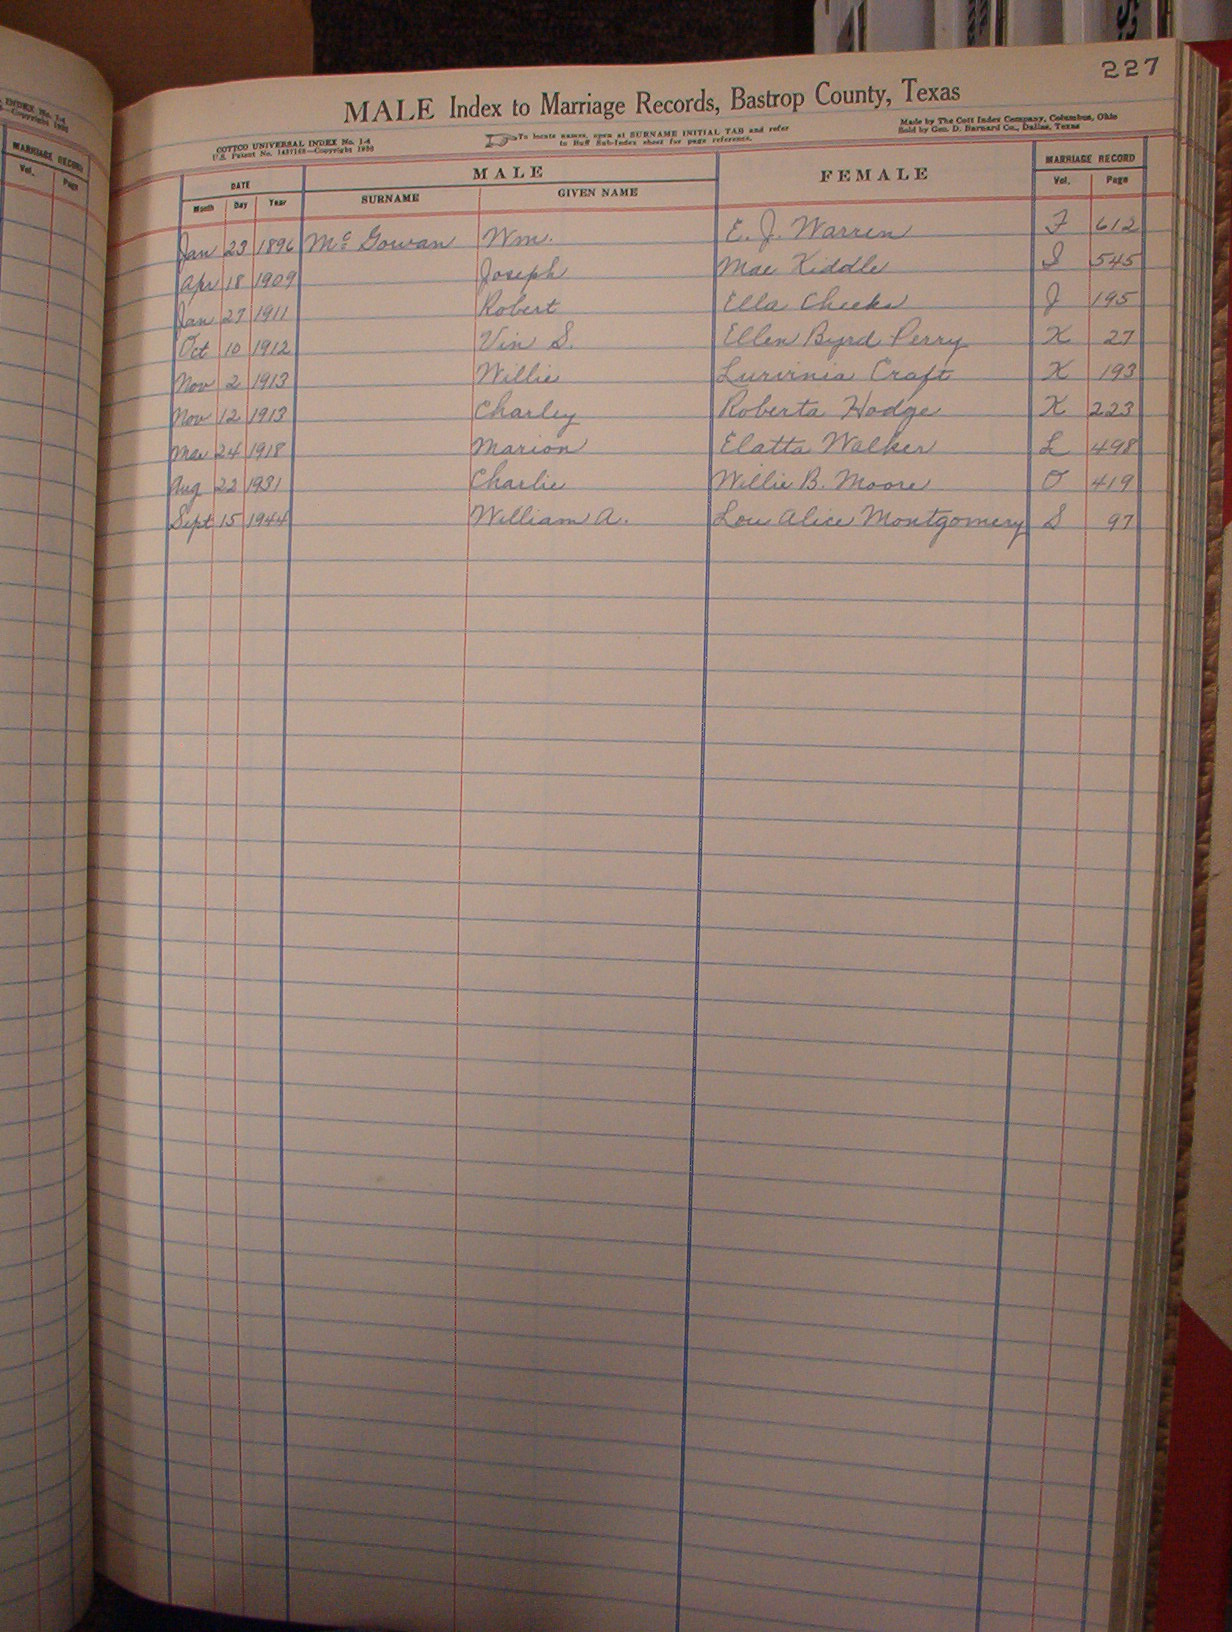 227
MALE Index to Marriage Records, Bastrop County, Texas
COTTCO UNIVERSAL INDEX No. 1-4
U.S. Patent No. 1437162—Copyright 1930
To locate names, open at SURNAME INITIAL TAB and refer
to Buff Sub-Index sheet for page reference.
Made by The Cott Index Company, Columbus, Ohio
Sold by Geo. D. Barnard Co., Dallas, Texas
INDEX No. 1-4
Copyright 1930
MARRIAGE RECORD
Vol. Page
DATE MALE FEMALE MARRIAGE RECORD
Month Day Year SURNAME GIVEN NAME Vol. Page
Jan 23 1896 McGowan Wm. E. J. Warren F 612
Apr 18 1909 Joseph Mae Kiddle I 545
Jan 27 1911 Robert Ella Cheeks J 195
Oct 10 1912 Vin S. Ellen Byrd Perry K 27
Nov 2 1913 Willie Lurvinia Craft K 193
Nov 12 1913 Charley Roberta Hodge K 223
Mar 24 1918 Marion Elatta Walker L 498
Aug 22 1931 Charlie Willie B. Moore O 419
Sept 15 1944 William A. Lou Alice Montgomery S 97